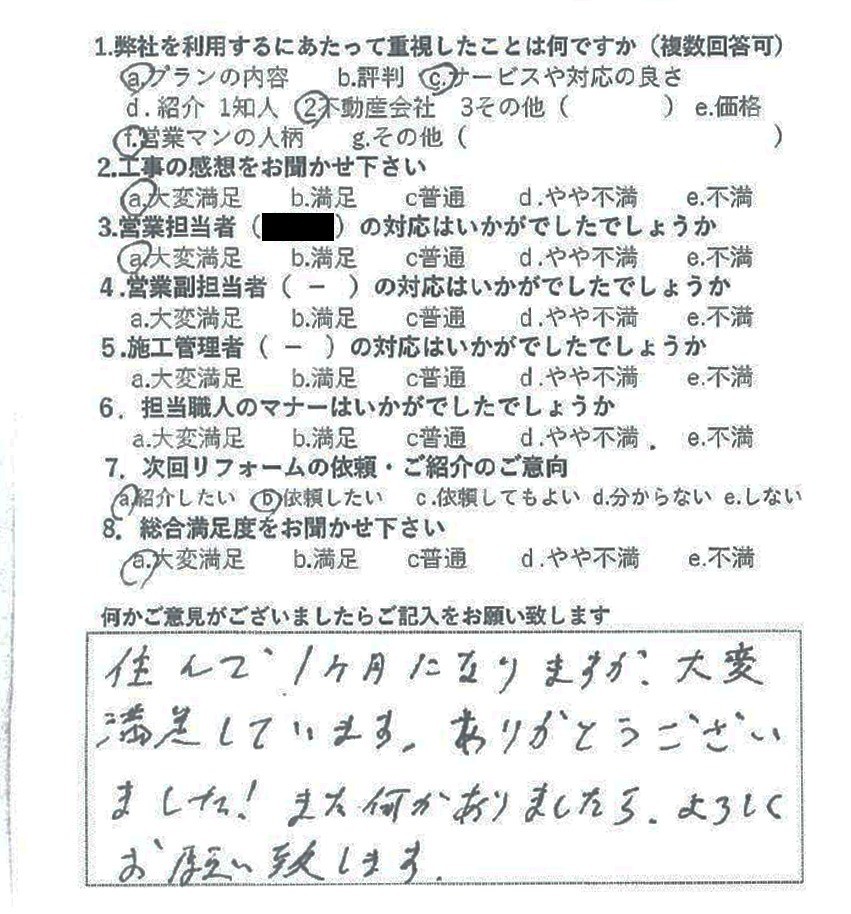 1.弊社を利用するにあたって重視したことは何ですか（複数回答可）
a.プランの内容 b.評判 c.サービスや対応の良さ
d.紹介 1知人 2不動産会社 3その他（ ） e.価格
f.営業マンの人柄 g.その他（ ）
2.工事の感想をお聞かせ下さい
a.大変満足 b.満足 c普通 d.やや不満 e.不満
3.営業担当者（ ）の対応はいかがでしたでしょうか
a.大変満足 b.満足 c普通 d.やや不満 e.不満
4.営業副担当者（ － ）の対応はいかがでしたでしょうか
a.大変満足 b.満足 c普通 d.やや不満 e.不満
5.施工管理者（ － ）の対応はいかがでしたでしょうか
a.大変満足 b.満足 c普通 d.やや不満 e.不満
6．担当職人のマナーはいかがでしたでしょうか
a.大変満足 b.満足 c普通 d.やや不満 e.不満
7．次回リフォームの依頼・ご紹介のご意向
a紹介したい b依頼したい c.依頼してもよい d.分からない e.しない
8．総合満足度をお聞かせ下さい
a.大変満足 b.満足 c普通 d.やや不満 e.不満
何かご意見がございましたらご記入をお願い致します
住んで1ヶ月になりますが、大変
満足しています。ありがとうござい
ました！また何かありましたら、よろしく
お願い致します。